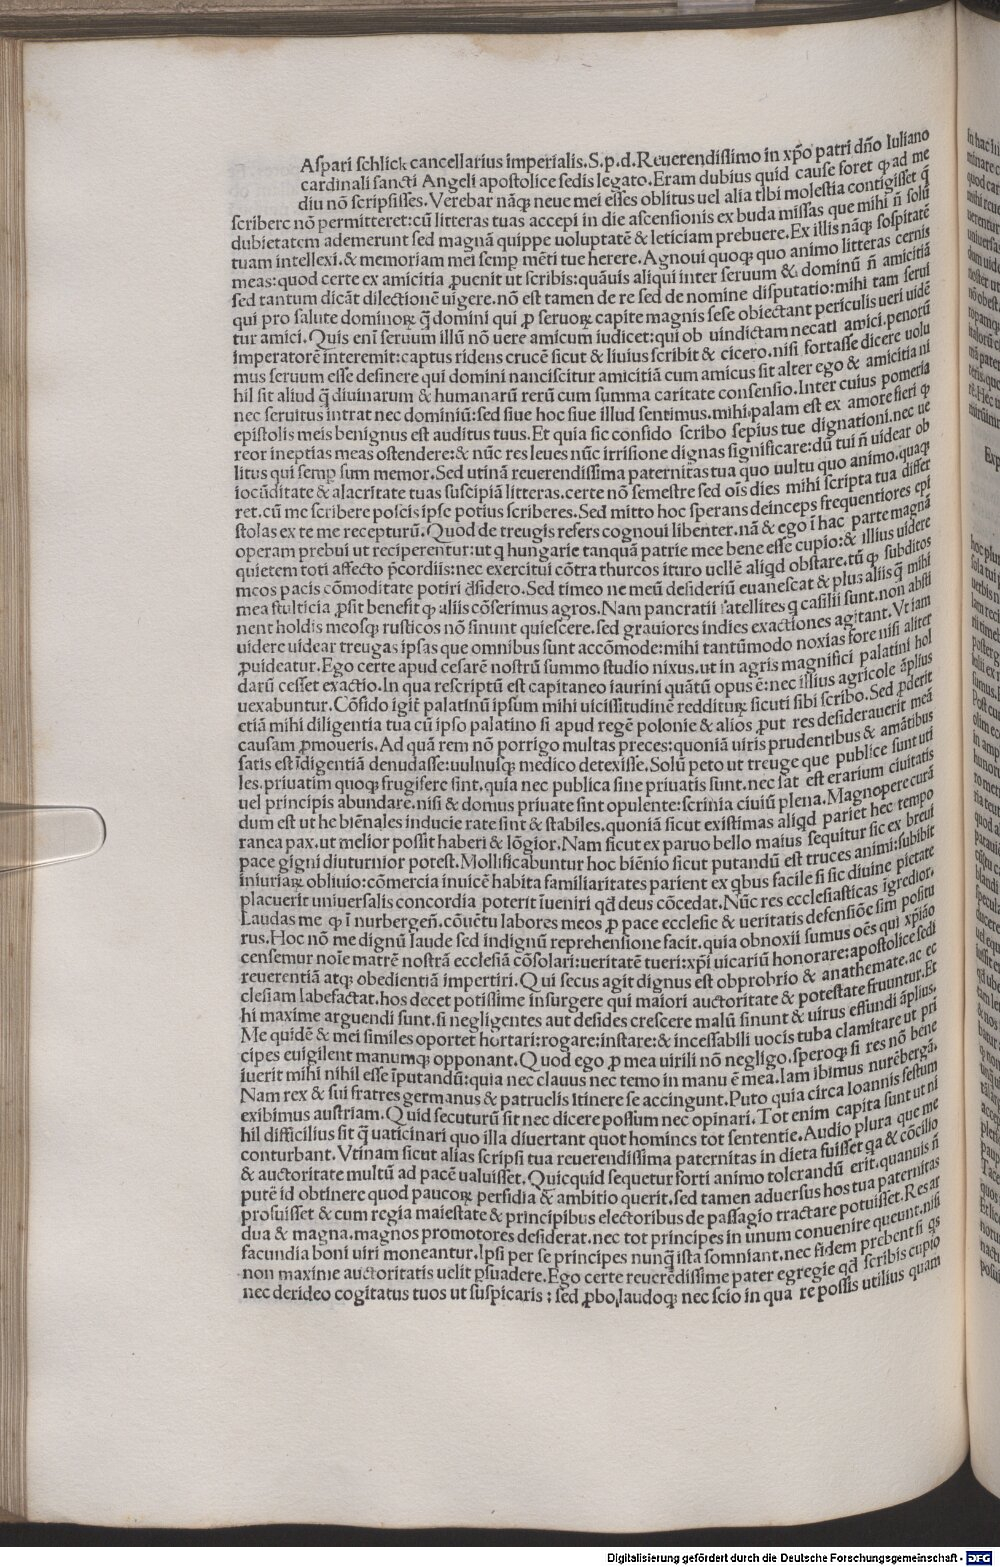 Aſpari ſchlick cancellarius imperialis.S.p.d.Reuerendiſſimo in xp̄o patri dn̄o Iuliano
cardinali ſancti Angeli apoſtolice ſedis legato.Eram dubius quid cauſe foret ꝙ ad me
diu nō ſcripſiſſes.Verebar nāqꝫ neue mei eſſes oblitus uel alia tibi moleſtia contigiſſet q̄
ſcribere nō permitteret:cū litteras tuas accepi in die aſcenſionis ex buda miſſas que mihi n̄ ſolū
dubietatem ademerunt ſed magnā quippe uoluptatē & leticiam prebuere.Ex illis nāqꝫ ſoſpitatē
tuam intellexi.& memoriam mei ſemꝑ mēti tue herere.Agnoui quoqꝫ quo animo litteras cernis
meas:quod certe ex amicitia ꝓuenit ut ſcribis:quāuis aliqui inter ſeruum & dominū n̄ amicitiā
ſed tantum dicāt dilectionē uigere.nō eſt tamen de re ſed de nomine diſputatio:mihi tam ſerui
qui pro ſalute dominoꝝ q̄ domini qui ꝓ ſeruoꝝ capite magnis ſeſe obiectant periculis ueri uidē
tur amici.Quis enī ſeruum illū nō uere amicum iudicet:qui ob uindictam necati amici.penorū
imperatorē interemit:captus ridens crucē ſicut & liuius ſcribit & cicero.niſi fortaſſe dicere uolu
mus ſeruum eſſe deſinere qui domini nanciſcitur amicitiā cum amicus ſit alter ego & amicitia ni
hil ſit aliud q̄ diuinarum & humanarū rerū cum ſumma caritate conſenſio.Inter cuius pomeria
nec ſeruitus intrat nec dominiū:ſed ſiue hoc ſiue illud ſentimus.mihi palam eſt ex amore fieri ꝙ
epiſtolis meis benignus eſt auditus tuus.Et quia ſic confido ſcribo ſepius tue dignationi.nec ue
reor ineptias meas oſtendere:& nūc res leues nūc irriſione dignas ſignificare:dū tui n̄ uidear ob
litus qui ſemꝑ ſum memor.Sed utinā reuerendiſſima paternitas tua quo uultu quo animo.quaqꝫ
iocūditate & alacritate tuas ſuſcipiā litteras.certe nō ſemeſtre ſed oīs dies mihi ſcripta tua differ
ret.cū me ſcribere poſcis ipſe potius ſcriberes.Sed mitto hoc ſperans deinceps frequentiores epi
ſtolas ex te me recepturū.Quod de treugis refers cognoui libenter.nā & ego ī hac parte magnā
operam prebui ut reciperentur:ut q hungarie tanquā patrie mee bene eſſe cupio:& illius uidere
quietem toti affecto p̄cordiis:nec exercitui cōtra thurcos ituro uellē aliqd obſtare.tū ꝙ ſubditos
meos pacis cōmoditate potiri d̄ſidero.Sed timeo ne meū deſideriū euaneſcat & plus aliis q̄ mihi
mea ſtulticia ꝓſit benefit ꝙ aliis cōſerimus agros.Nam pancratii ſatellites q caſilii ſunt.non abſti
nent holdis meoſqꝫ ruſticos nō ſinunt quieſcere.ſed grauiores indies exactiones agitant.Vt iam
uidere uidear treugas ipſas que omnibus ſunt accōmode:mihi tantūmodo noxias fore niſi aliter
ꝓuideatur.Ego certe apud ceſarē noſtrū ſummo ſtudio nixus.ut in agris magnifici palatini hol
darū ceſſet exactio.In qua reſcriptū eſt capitaneo iaurini quātū opus ē:nec illius agricole āplius
uexabuntur.Cōfido igit̄ palatinū ipſum mihi uiciſſitudinē redditurꝫ ſicuti ſibi ſcribo.Sed ꝓderit
etiā mihi diligentia tua cū ipſo palatino ſi apud regē polonie & alios ꝓut res deſiderauerit meā
cauſam ꝓmoueris.Ad quā rem nō porrigo multas preces:quoniā uiris prudentibus & amātibus
ſatis eſt īdigentiā denudaſſe:uulnuſqꝫ medico detexiſſe.Solū peto ut treuge que publice ſunt uti
les.priuatim quoqꝫ frugifere ſint.quia nec publica ſine priuatis ſunt.nec ſat eſt erarium ciuitatis
uel principis abundare.niſi & domus priuate ſint opulente:ſcrinia ciuiū plena.Magnopere curā
dum eſt ut he biēnales inducie rate ſint & ſtabiles.quoniā ſicut exiſtimas aliqd pariet hec tempo
ranea pax.ut melior poſſit haberi & lōgior.Nam ſicut ex paruo bello maius ſequitur ſic ex breui
pace gigni diuturnior poteſt.Mollificabuntur hoc biēnio ſicut putandū eſt truces animi:ſubibit
iniuriaꝝ obliuio:cōmercia inuicē habita familiaritates parient ex qbus facile ſi ſic diuine pietate
placuerit uniuerſalis concordia poterit īueniri qd̄ deus cōcedat.Nūc res eccleſiaſticas īgredior.
Laudas me ꝙ ī nurbergen̄.cōuētu labores meos ꝓ pace eccleſie & ueritatis defenſiōe ſim poſitu
rus.Hoc nō me dignū laude ſed indignū reprehenſione facit.quia obnoxii ſumus oēs qui xp̄iāo
cenſemur noīe matrē noſtrā eccleſiā cōſolari:ueritatē tueri:xp̄i uicariū honorare:apoſtolice ſedi
reuerentiā atqꝫ obedientiā impertiri.Qui ſecus agit dignus eſt obprobrio & anathemate.ac ec
cleſiam labefactat.hos decet potiſſime inſurgere qui maiori auctoritate & poteſtate fruuntur.Et
hi maxime arguendi ſunt.ſi negligentes aut deſides creſcere malū ſinunt & uirus effundi āplius.
Me quidē & mei ſimiles oportet hortari:rogare:inſtare:& inceſſabili uocis tuba clamitare ut pri
cipes euigilent manumqꝫ opponant.Quod ego ꝓ mea uirili nō negligo.ſperoqꝫ ſi res nō bene
iuerit mihi nihil eſſe īputandū:quia nec clauus nec temo in manu ē mea.Iam ibimus nurēbergā.
Nam rex & ſui fratres germanus & patruelis itinere ſe accingunt.Puto quia circa Ioannis feſtum
exibimus auſtriam.Quid ſecuturū ſit nec dicere poſſum nec opinari.Tot enim capita ſunt ut ni
hil difficilius ſit q̄ uaticinari quo illa diuertant quot homines tot ſententie.Audio plura que me
conturbant.Vtinam ſicut alias ſcripſi tua reuerendiſſima paternitas in dieta fuiſſet qa & cōcilio
& auctoritate multū ad pacē ualuiſſet.Quicquid ſequetur forti animo tolerandū erit.quanuis n̄
putē id obtinere quod paucoꝝ perfidia & ambitio querit.ſed tamen aduerſus hos tua paternitas
profuiſſet & cum regia maieſtate & principibus electoribus de paſſagio tractare potuiſſet.Res ar
dua & magna.magnos promotores deſiderat.nec tot principes in unum conuenire queunt.niſi
facundia boni uiri moneantur.Ipſi per ſe principes nunq̄ iſta ſomniant.nec fidem prebent ſi qs
non maxime auctoritatis uelit ꝑſuadere.Ego certe reuerēdiſſime pater egregie qd̄ ſcribis cupio
nec derideo cogitatus tuos ut ſuſpicaris:ſed ꝓbo.laudoqꝫ nec ſcio in qua re poſſis utilius quam
Digitalisierung gefördert durch die Deutsche Forschungsgemeinschaft - DFG